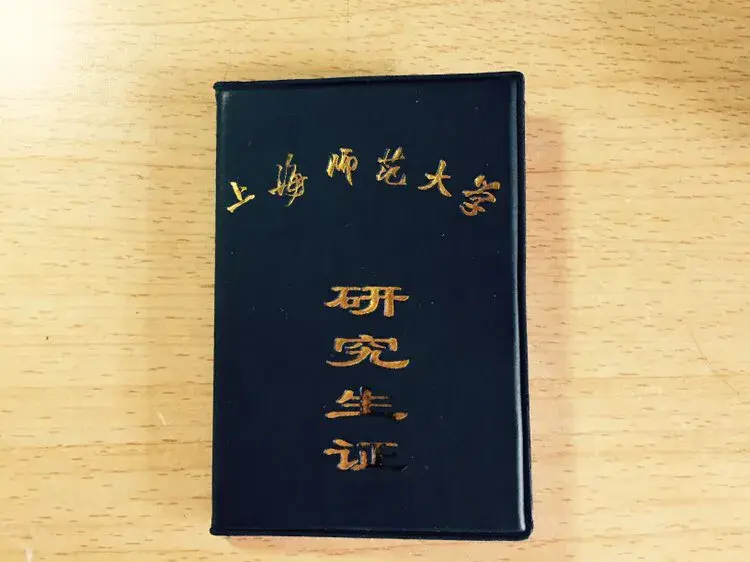 上海师范大学
研究生证